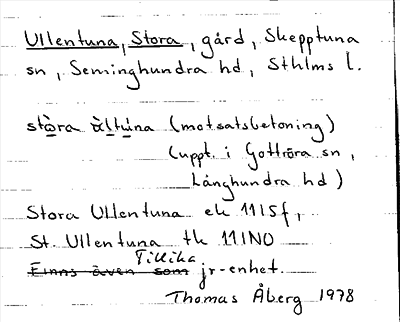 Ullentuna, Stora, gård, Skepptuna
sn, Seminghundra hd, Sthlms l.
stòra àltùna (motsatsbetoning)
(uppt. i Gottröra sn,
Långhundra hd)
Stora Ullentuna ek 11I5f,
St. Ullentuna tk 11INO
Tillika
Finns även som jr-enhet.
Thomas Åberg 1978